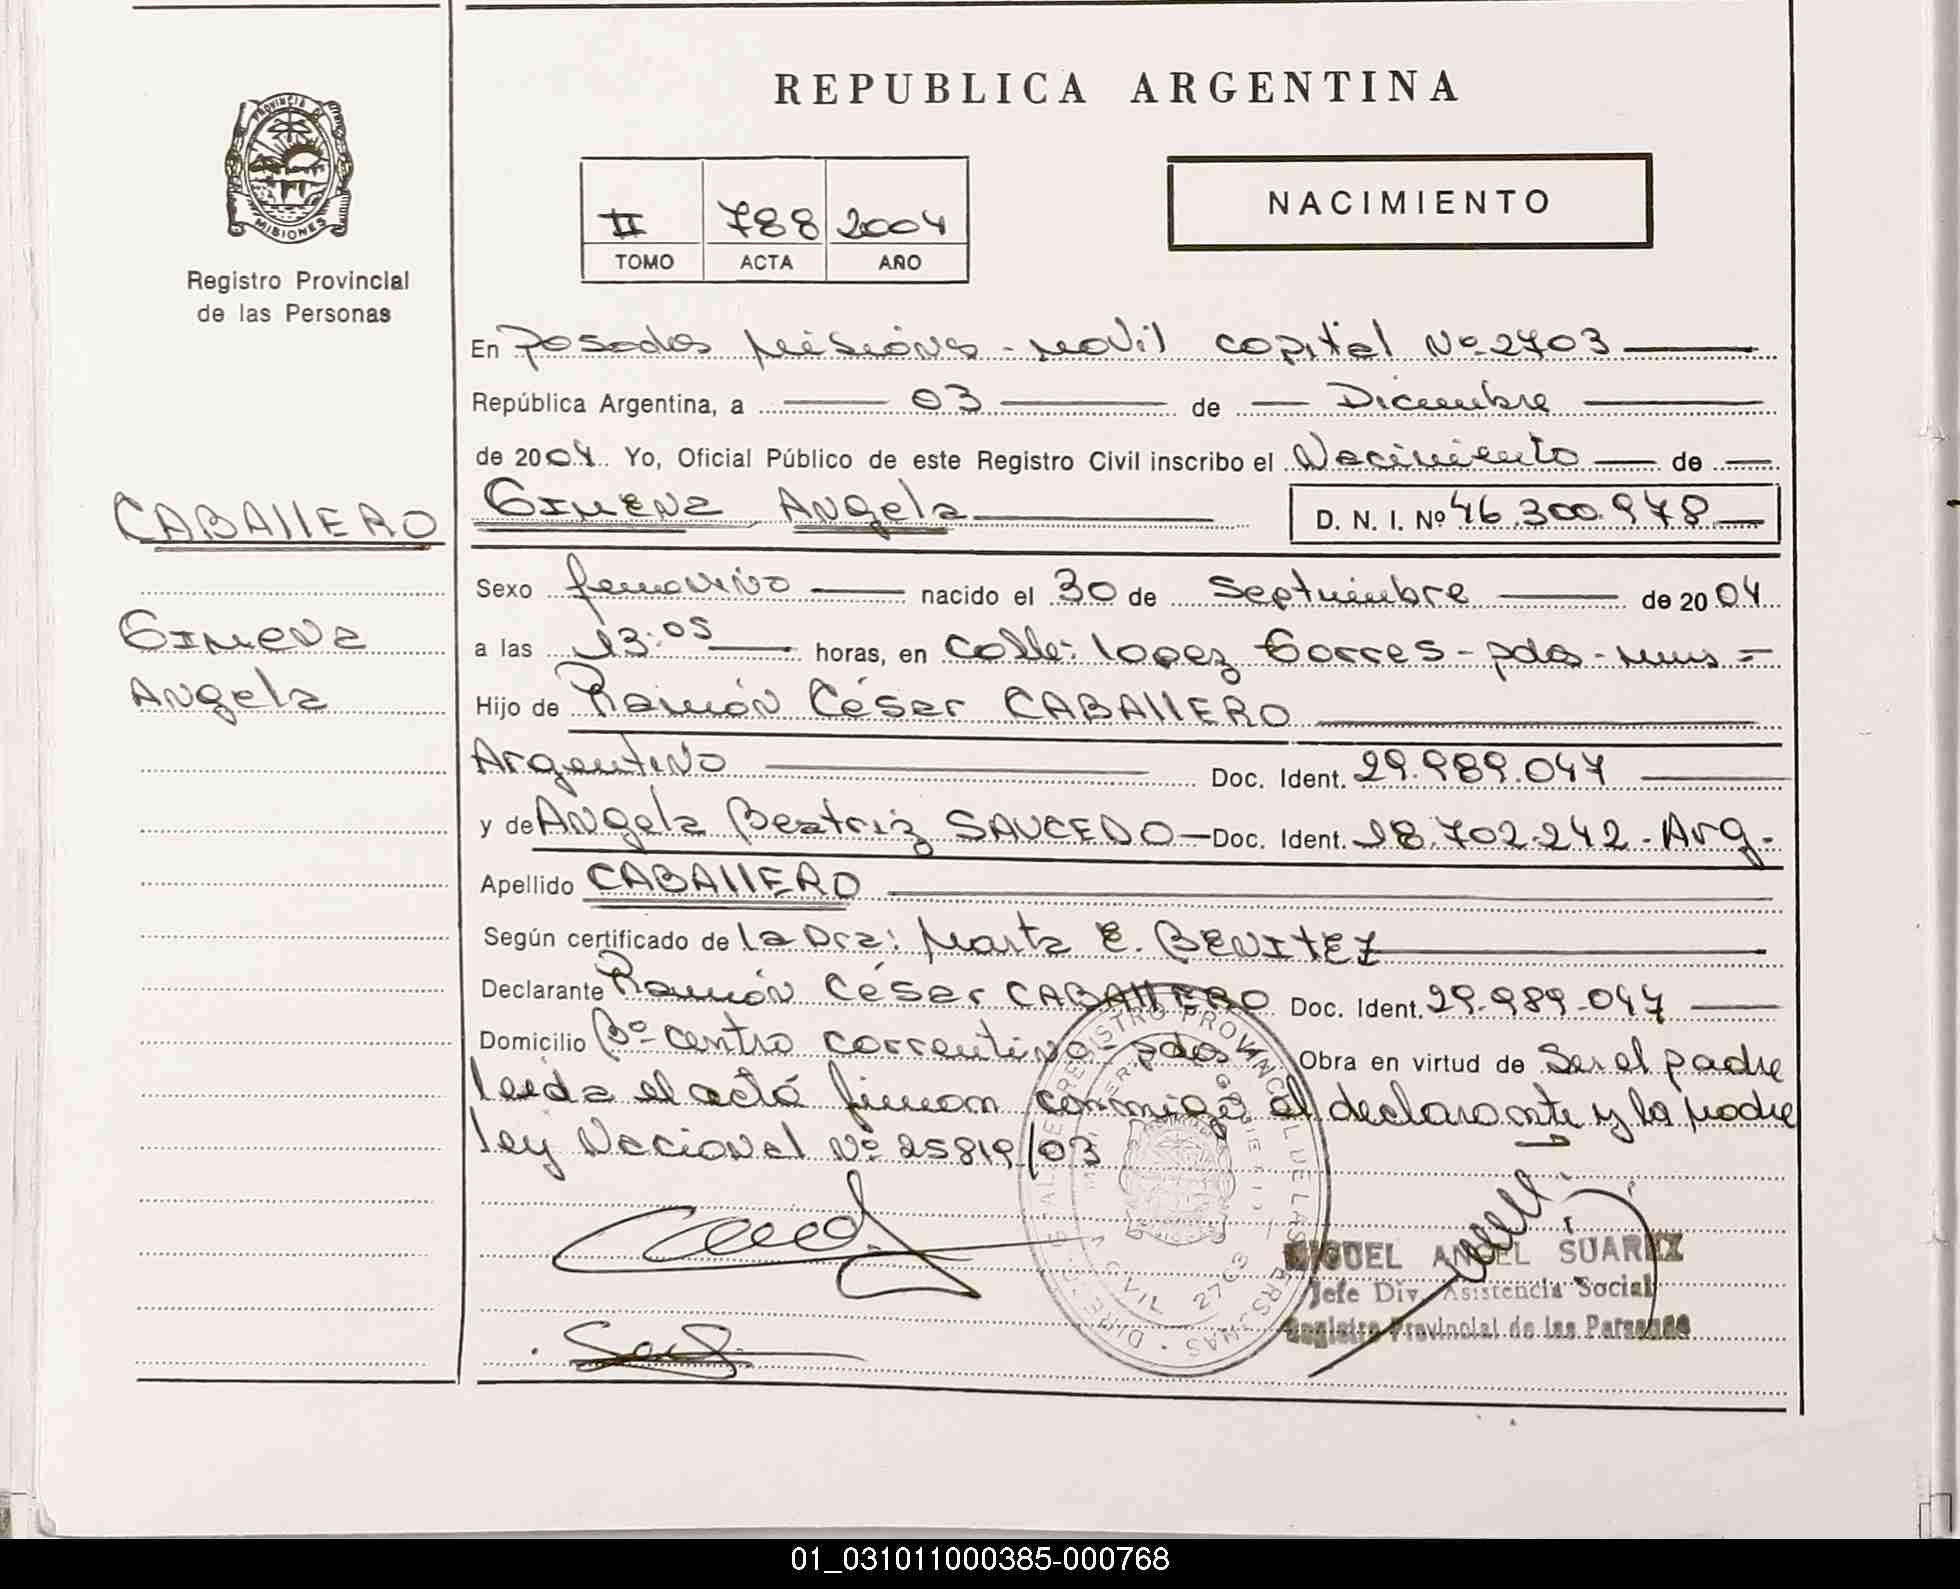 REPUBLICA ARGENTINA
PROVINCIA DE
MISIONES
Registro Provincial
de las Personas
II 788 2004
TOMO ACTA AÑO
NACIMIENTO
En Posadas Misiones - Movil Capital Nº 2703
República Argentina, a 03 de Diciembre
de 2004 Yo, Oficial Público de este Registro Civil inscribo el Nacimiento de
CABALLERO
Gimena Angela D. N. I. Nº 46.300.978
Sexo femenino nacido el 30 de Septiembre de 2004
Gimena
a las 13:05 horas, en Calle: Lopez Torres - pdas - mnes =
Angela
Hijo de Ramón César CABALLERO
Argentino Doc. Ident. 29.989.047
y de Angela Beatriz SAUCEDO Doc. Ident. 18.702.242 - Arg.
Apellido CABALLERO
Según certificado de la Dra: Marta E. BENITEZ
Declarante Ramón César CABALLERO Doc. Ident. 29.989.047
Domicilio Bº Centro correntino - pdas Obra en virtud de Ser el padre
Leida el acta firman conmigo el declarante y la madre
Ley Nacional Nº 25819/03
CIVIL 2703
MIGUEL ANGEL SUAREZ
Jefe Div. Asistencia Social
Registro Provincial de las Personas
01_031011000385-000768